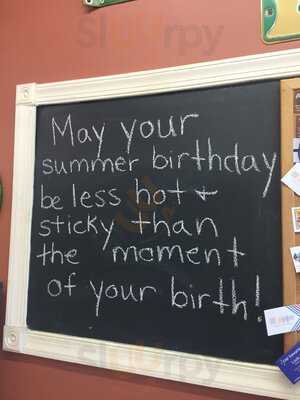 May your
summer birthday
be less hot +
sticky than
the moment
of your birth!